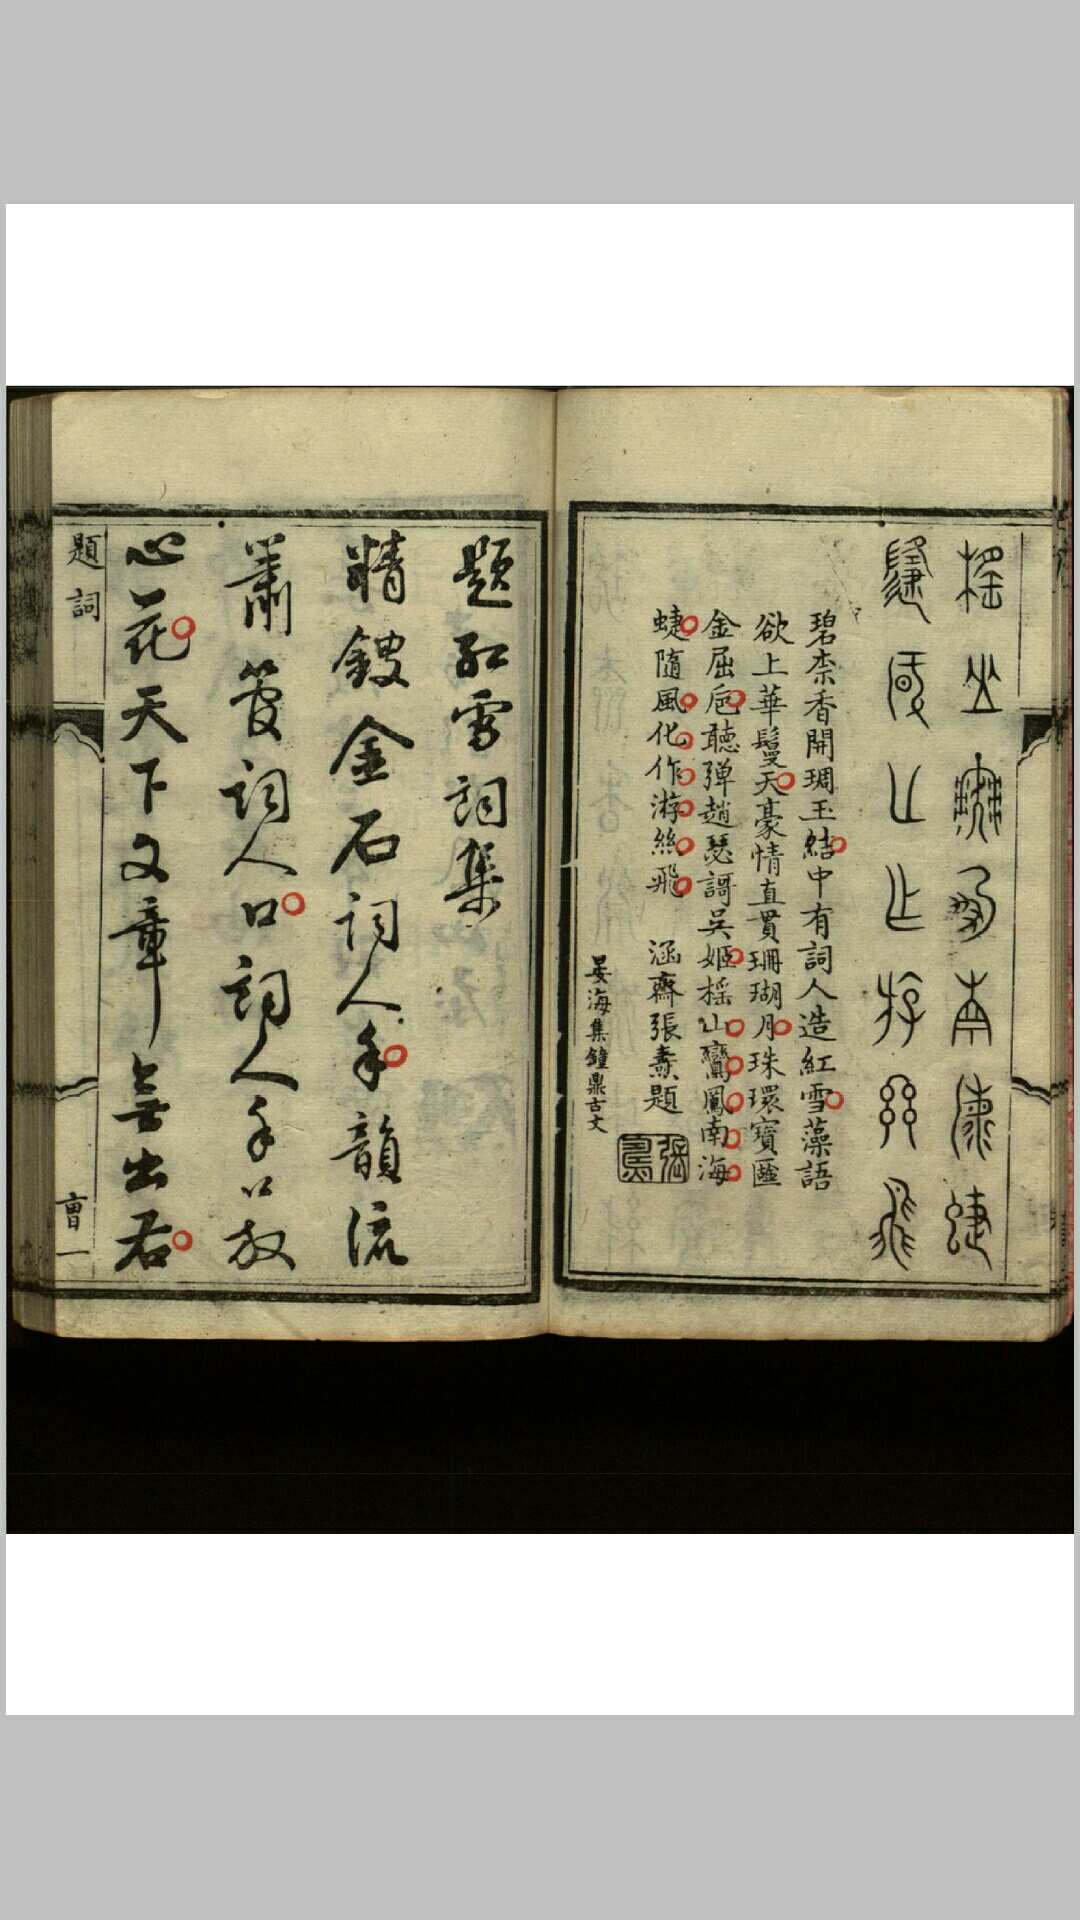 榣山鸞鳳南海蜨
隨風化作游絲飛
碧柰香開琱玉結中有詞人造紅雪藻語
欲上華鬘天豪情直貫珊瑚月珠環寶匳
金屈卮聽彈趙瑟謌吳姬榣山鸞鳳南海
蜨隨風化作游絲飛 涵齋張燾題
晏海集鐘鼎古文
題紅雪詞集
精鏤金石詞人手韻流
簫管詞人口詞人手口放
心花天下文章無出右
題詞
一